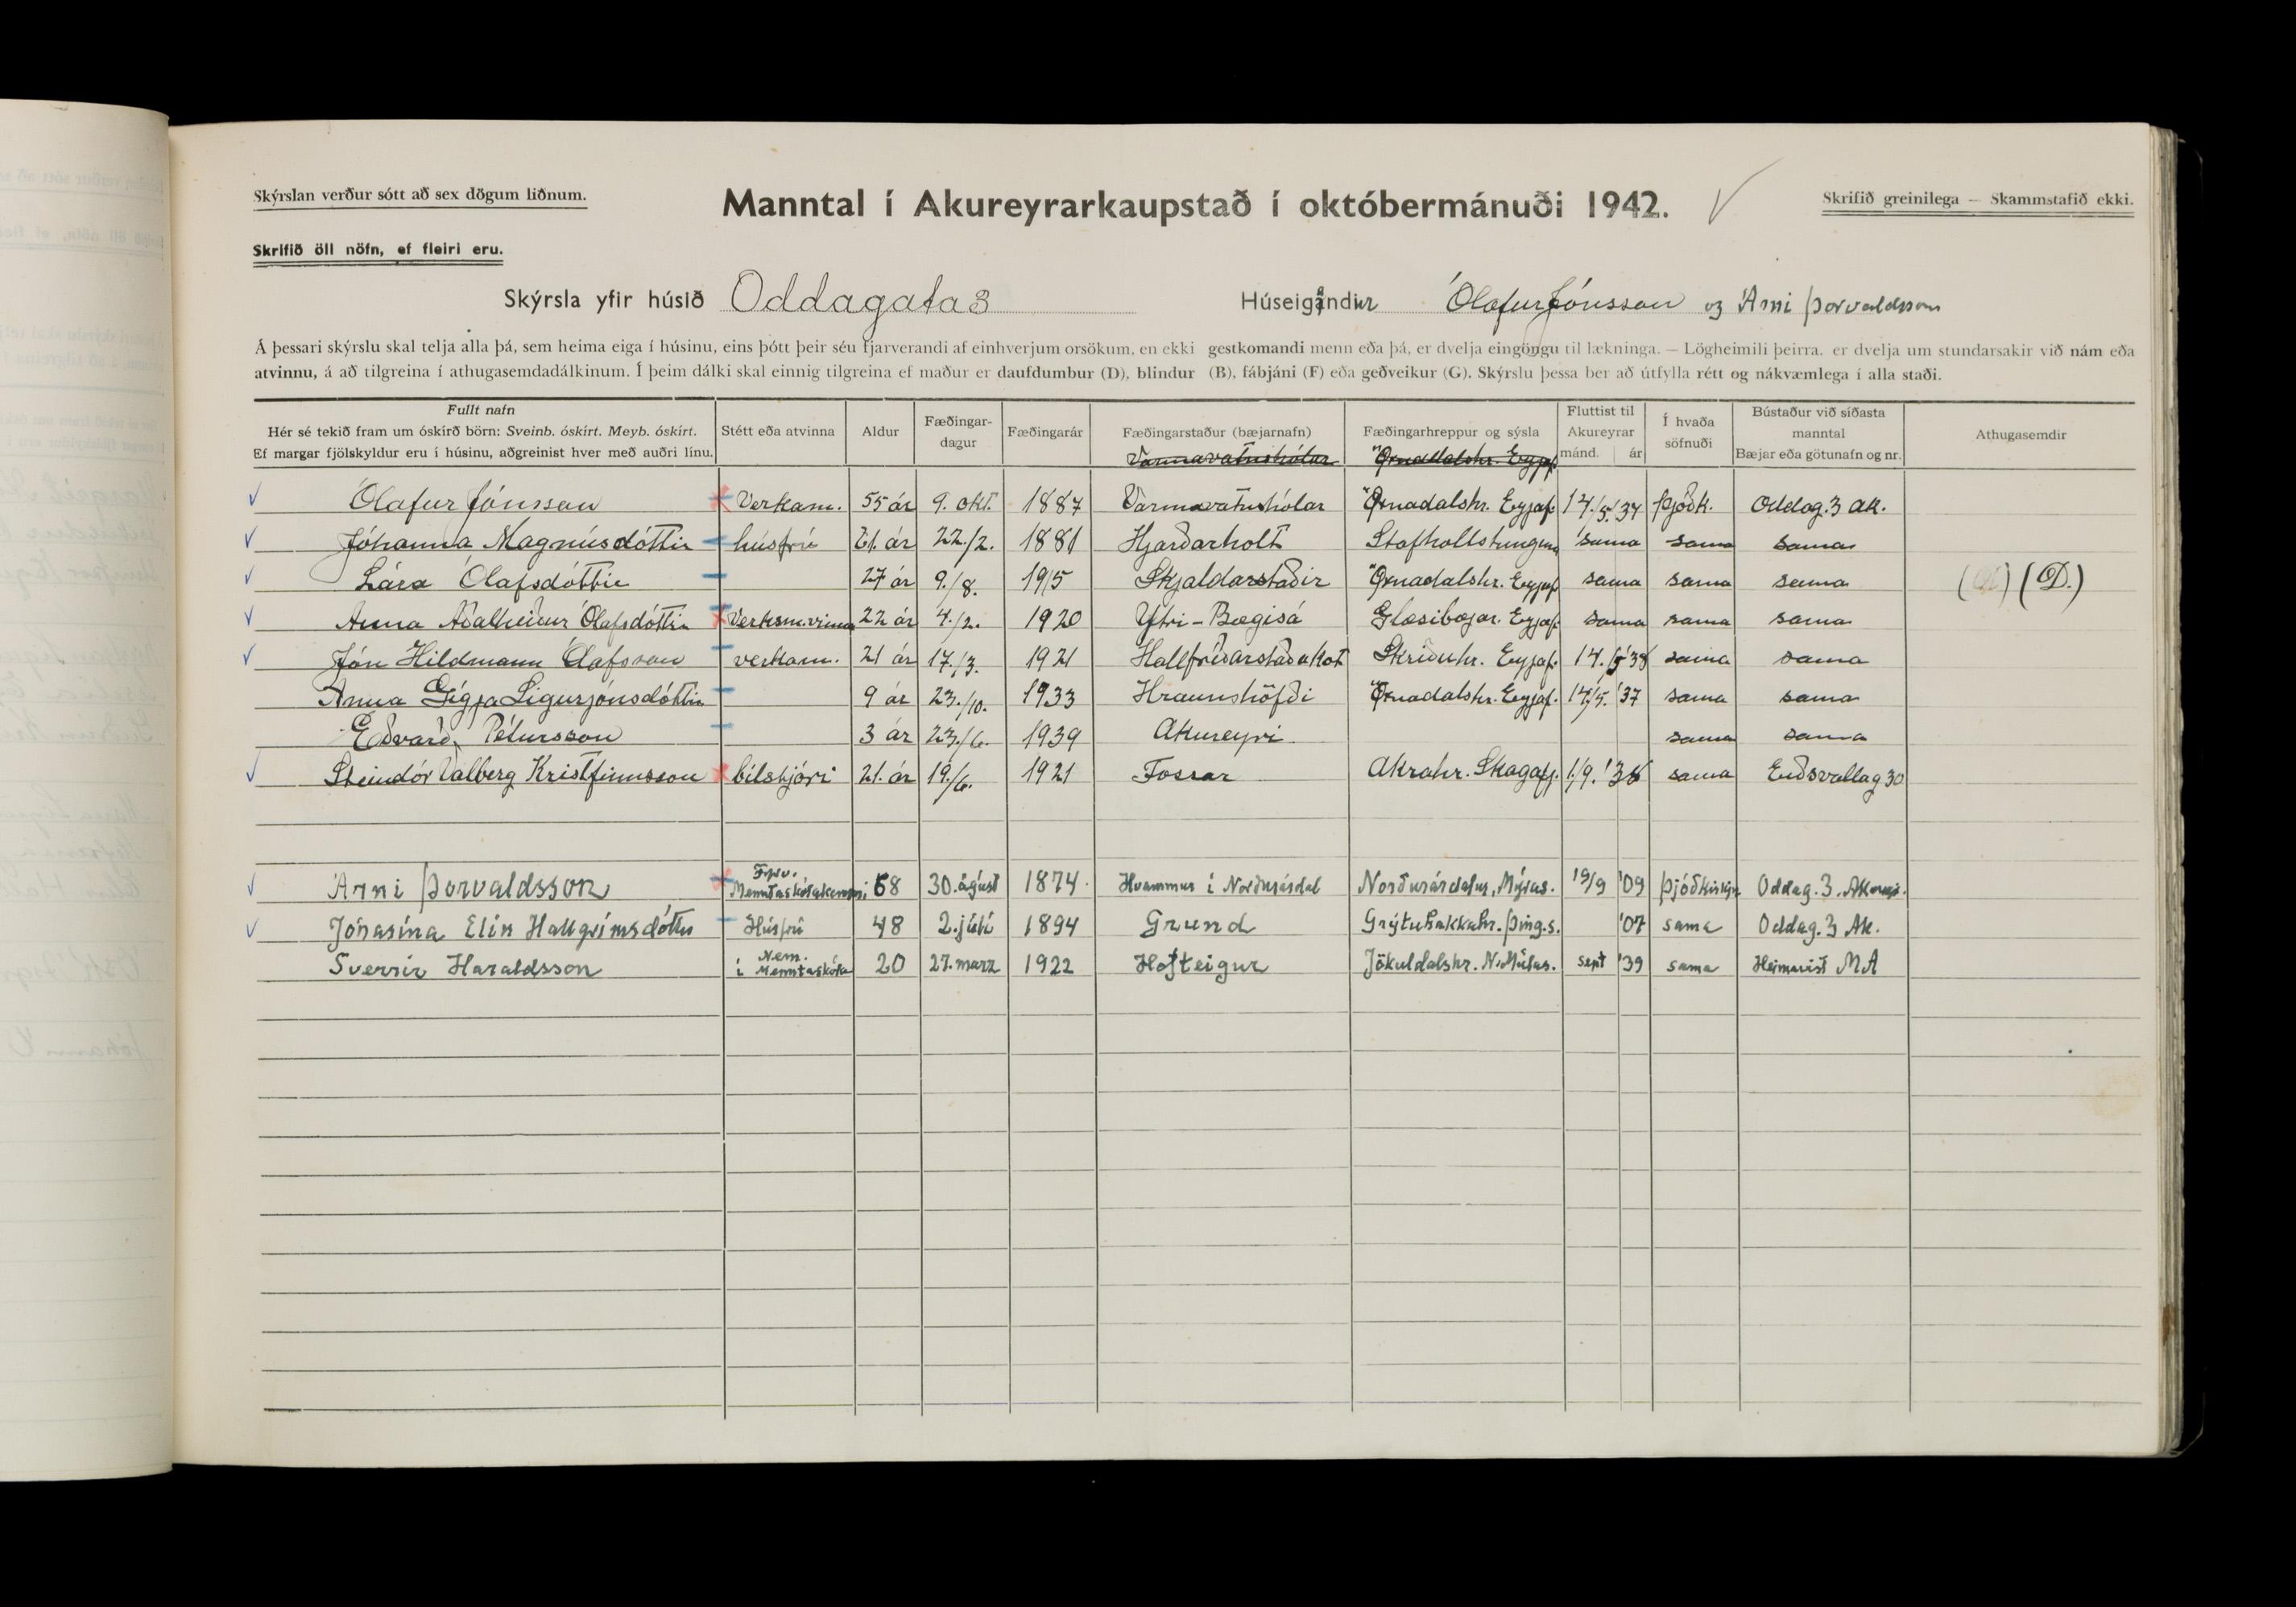 Skýrslan verður sótt að sex dögum liðnum.
Manntal í Akureyrarkaupstað í októbermánuði 1942.
Skrifið greinilega — Skammstafið ekki.
Skrifið öll nöfn, ef fleiri eru.
Skýrsla yfir húsið Oddagata 3 Húseigendur Ólafur Jónsson og Árni Þorvaldsson
Á þessari skýrslu skal telja alla þá, sem heima eiga í húsinu, eins þótt þeir séu fjarverandi af einhverjum orsökum, en ekki gestkomandi menn eða þá, er dvelja eingöngu til lækninga. — Lögheimili þeirra, er dvelja um stundarsakir við nám eða
atvinnu, á að tilgreina í athugasemdadálkinum. Í þeim dálki skal einnig tilgreina ef maður er daufdumbur (D), blindur (B), fábjáni (F) eða geðveikur (G). Skýrslu þessa ber að útfylla rétt og nákvæmlega í alla staði.
Fullt nafn
Hér sé tekið fram um óskírð börn: Sveinb. óskírt. Meyb. óskírt.
Ef margar fjölskyldur eru í húsinu, aðgreinist hver með auðri línu.
Stétt eða atvinna
Aldur
Fæðingar-
dagur
Fæðingarár
Fæðingarstaður (bæjarnafn)
Fæðingarhreppur og sýsla
Fluttist til
Akureyrar
mánd. ár
Í hvaða
söfnuði
Bústaður við síðasta
manntal
Bæjar eða götunafn og nr.
Athugasemdir
Varmavatnshólar Öxnadalshr. Eyjaf.
Ólafur Jónsson Verkam. 55 ár 9. okt. 1887 Varmavatnshólar Öxnadalshr. Eyjaf. 14/5. '37 Þjóðk. Oddag. 3 Ak.
Jóhanna Magnúsdóttir húsfrú 61. ár 22./2. 1881 Hjarðarholt Stafholtstungum sama sama sama
Lára Ólafsdóttir 27 ár 9./8. 1915 Skjaldarstaðir Öxnadalshr. Eyjaf. sama sama sama (D.)
Anna Aðalheiður Ólafsdóttir Verksm.vinna 22 ár 4./2. 1920 Ytri-Bægisá Glæsibæjar. Eyjaf. sama sama sama
Jón Hildmann Ólafsson verkam. 21 ár 17./3. 1921 Hallfríðarstaðakot Skriðuhr. Eyjaf. 14./5 '38 sama sama
Anna Gígja Sigurjónsdóttir 9 ár 23./10. 1933 Hraunshöfði Öxnadalshr. Eyjaf. 14/5. '37 sama sama
Eðvarð Pétursson 3 ár 23./6. 1939 Akureyri sama sama
Steindór Valberg Kristfinnsson bílstjóri 21. ár 19./6. 1921 Fossar Akrahr. Skagafj. 1./9. '38 sama Eiðsvallag 30
Árni Þorvaldsson Fyrv. Menntaskólakennari 68 30. ágúst 1874 Hvammur í Norðurárdal Norðurárdalur, Mýras. 19/9 '09 Þjóðkirkju Oddag. 3. Akureyri.
Jónasína Elín Hallgrímsdóttir Húsfrú 48 2. júlí 1894 Grund Grýtubakkahr. Þing.s. '07 sama Oddag. 3 Ak.
Sverrir Haraldsson Nem. í Menntaskóla 20 27. marz 1922 Hofteigur Jökuldalshr. N-Múlas. sept '39 sama Heimavist MA